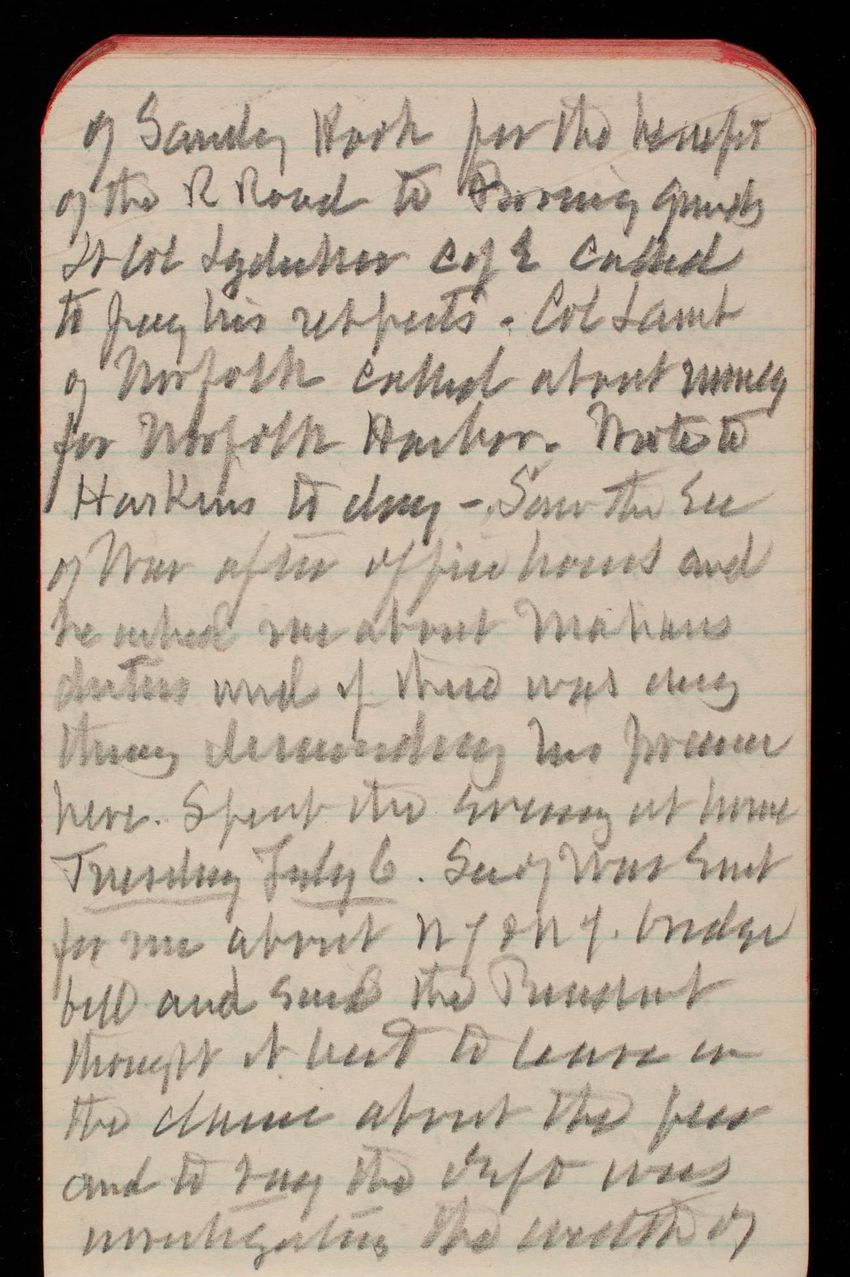 of Sandy Hook for the benefit
of the R Road to Proving Grounds
Lt Col Lydecker C of E called
to pay his respects - Col Lamb
of Norfolk called about money
for Norfolk Harbor. Wrote to
Harkins to day - Saw the Sec
of War after office hours and
he asked me about Mahans
duties and if there was any
thing demanding his presence
here. Spent the evening at home
Tuesday July 6. Sec of War sent
for me about N Y & N J. bridge
bill and said the President
thought it best to leave in
the clause about the
and to say the Dept was
investigating the width of